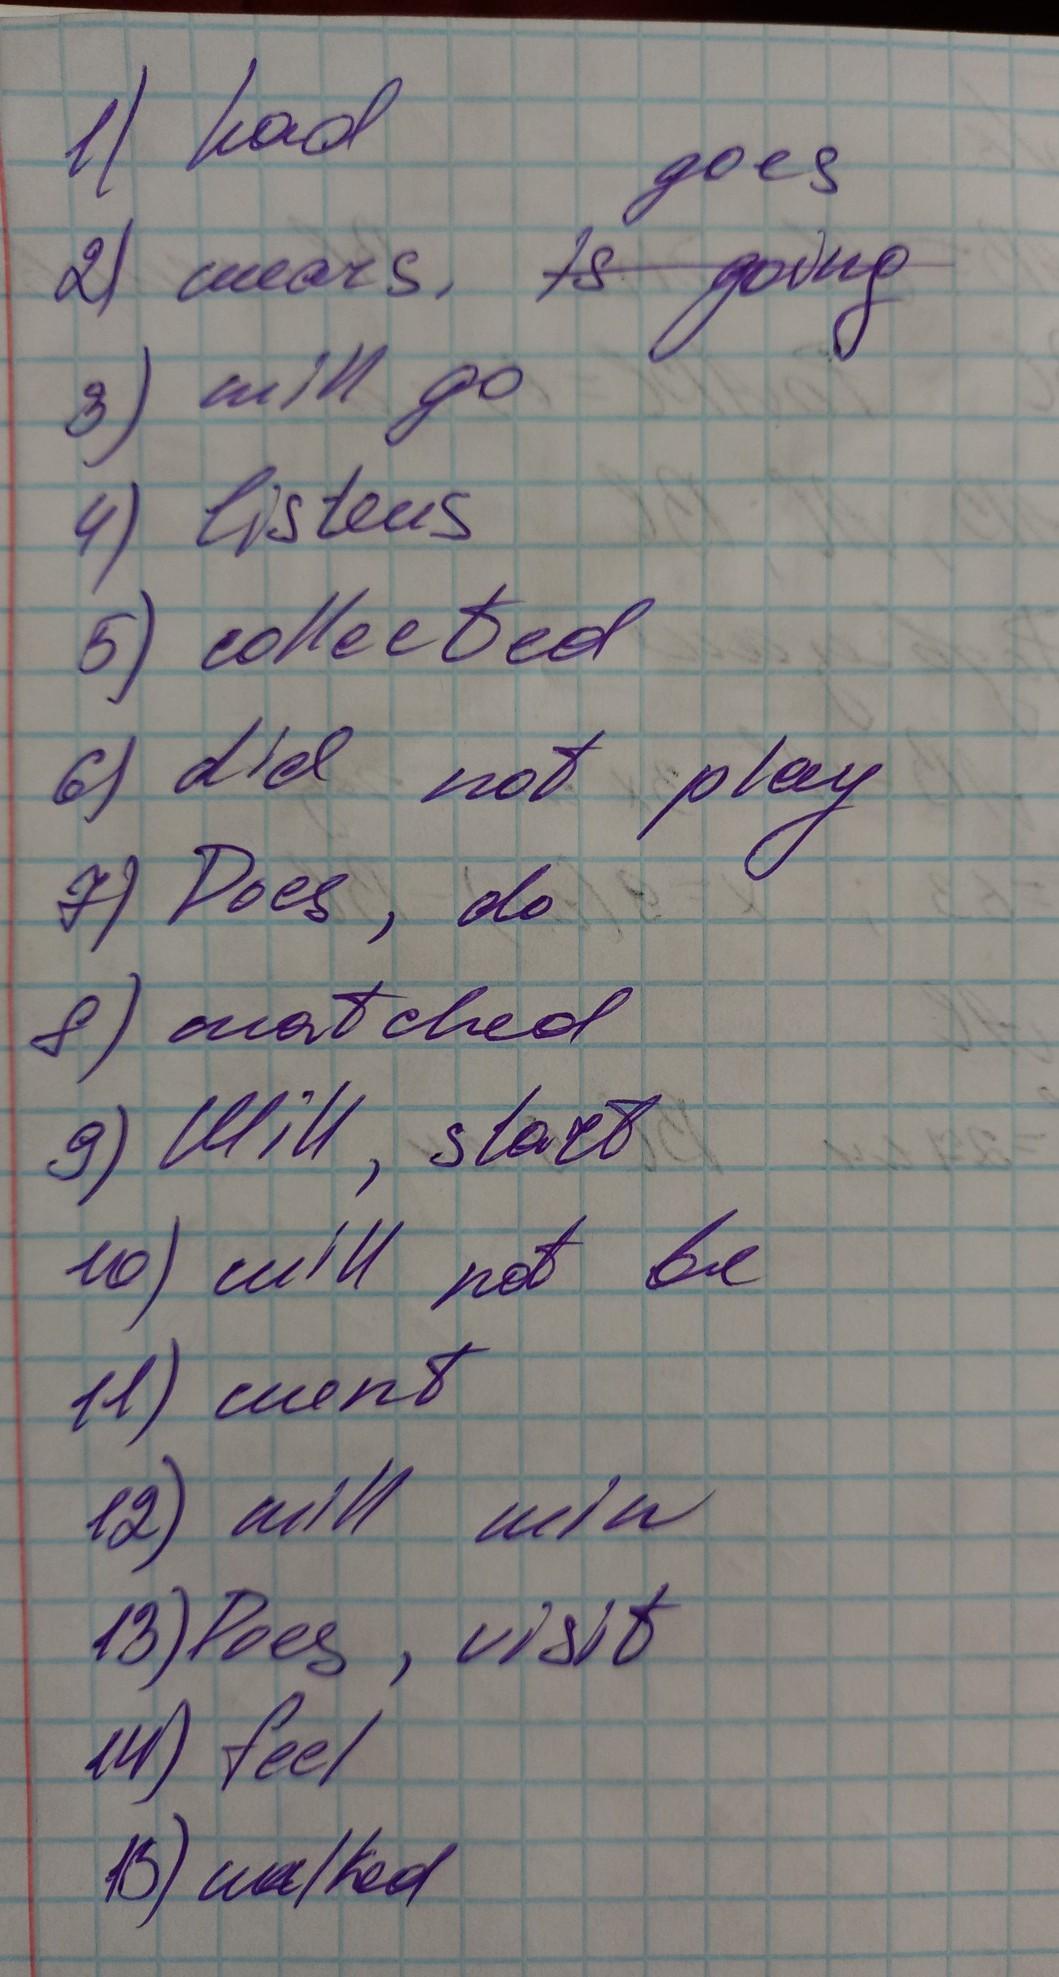 1) had
goes
2) wears, is going
3) will go
4) listens
5) collected
6) did not play
7) Does, do
8) watched
9) Will, start
10) will not be
11) went
12) will win
13) Does, visit
14) feel
15) walked